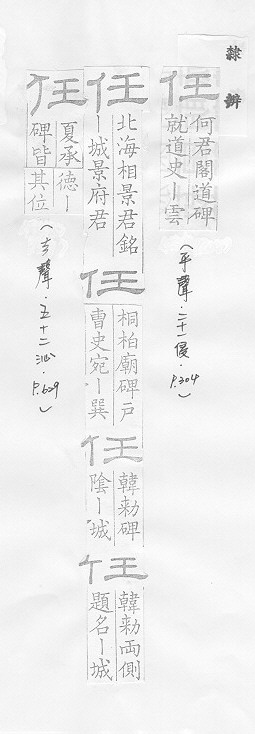 隸辨
任
何君閣道碑
就道史ー雲
(平聲.二十一侵.P.304)
任
北海相景君銘
ー城景府君
任
桐柏廟碑戶
曹史宛ー巽
任
韓勑碑
陰ー城
任
韓勑兩側
題名ー城
任
夏承
碑皆
德ー
其位
(去聲.五十二沁.P.629)